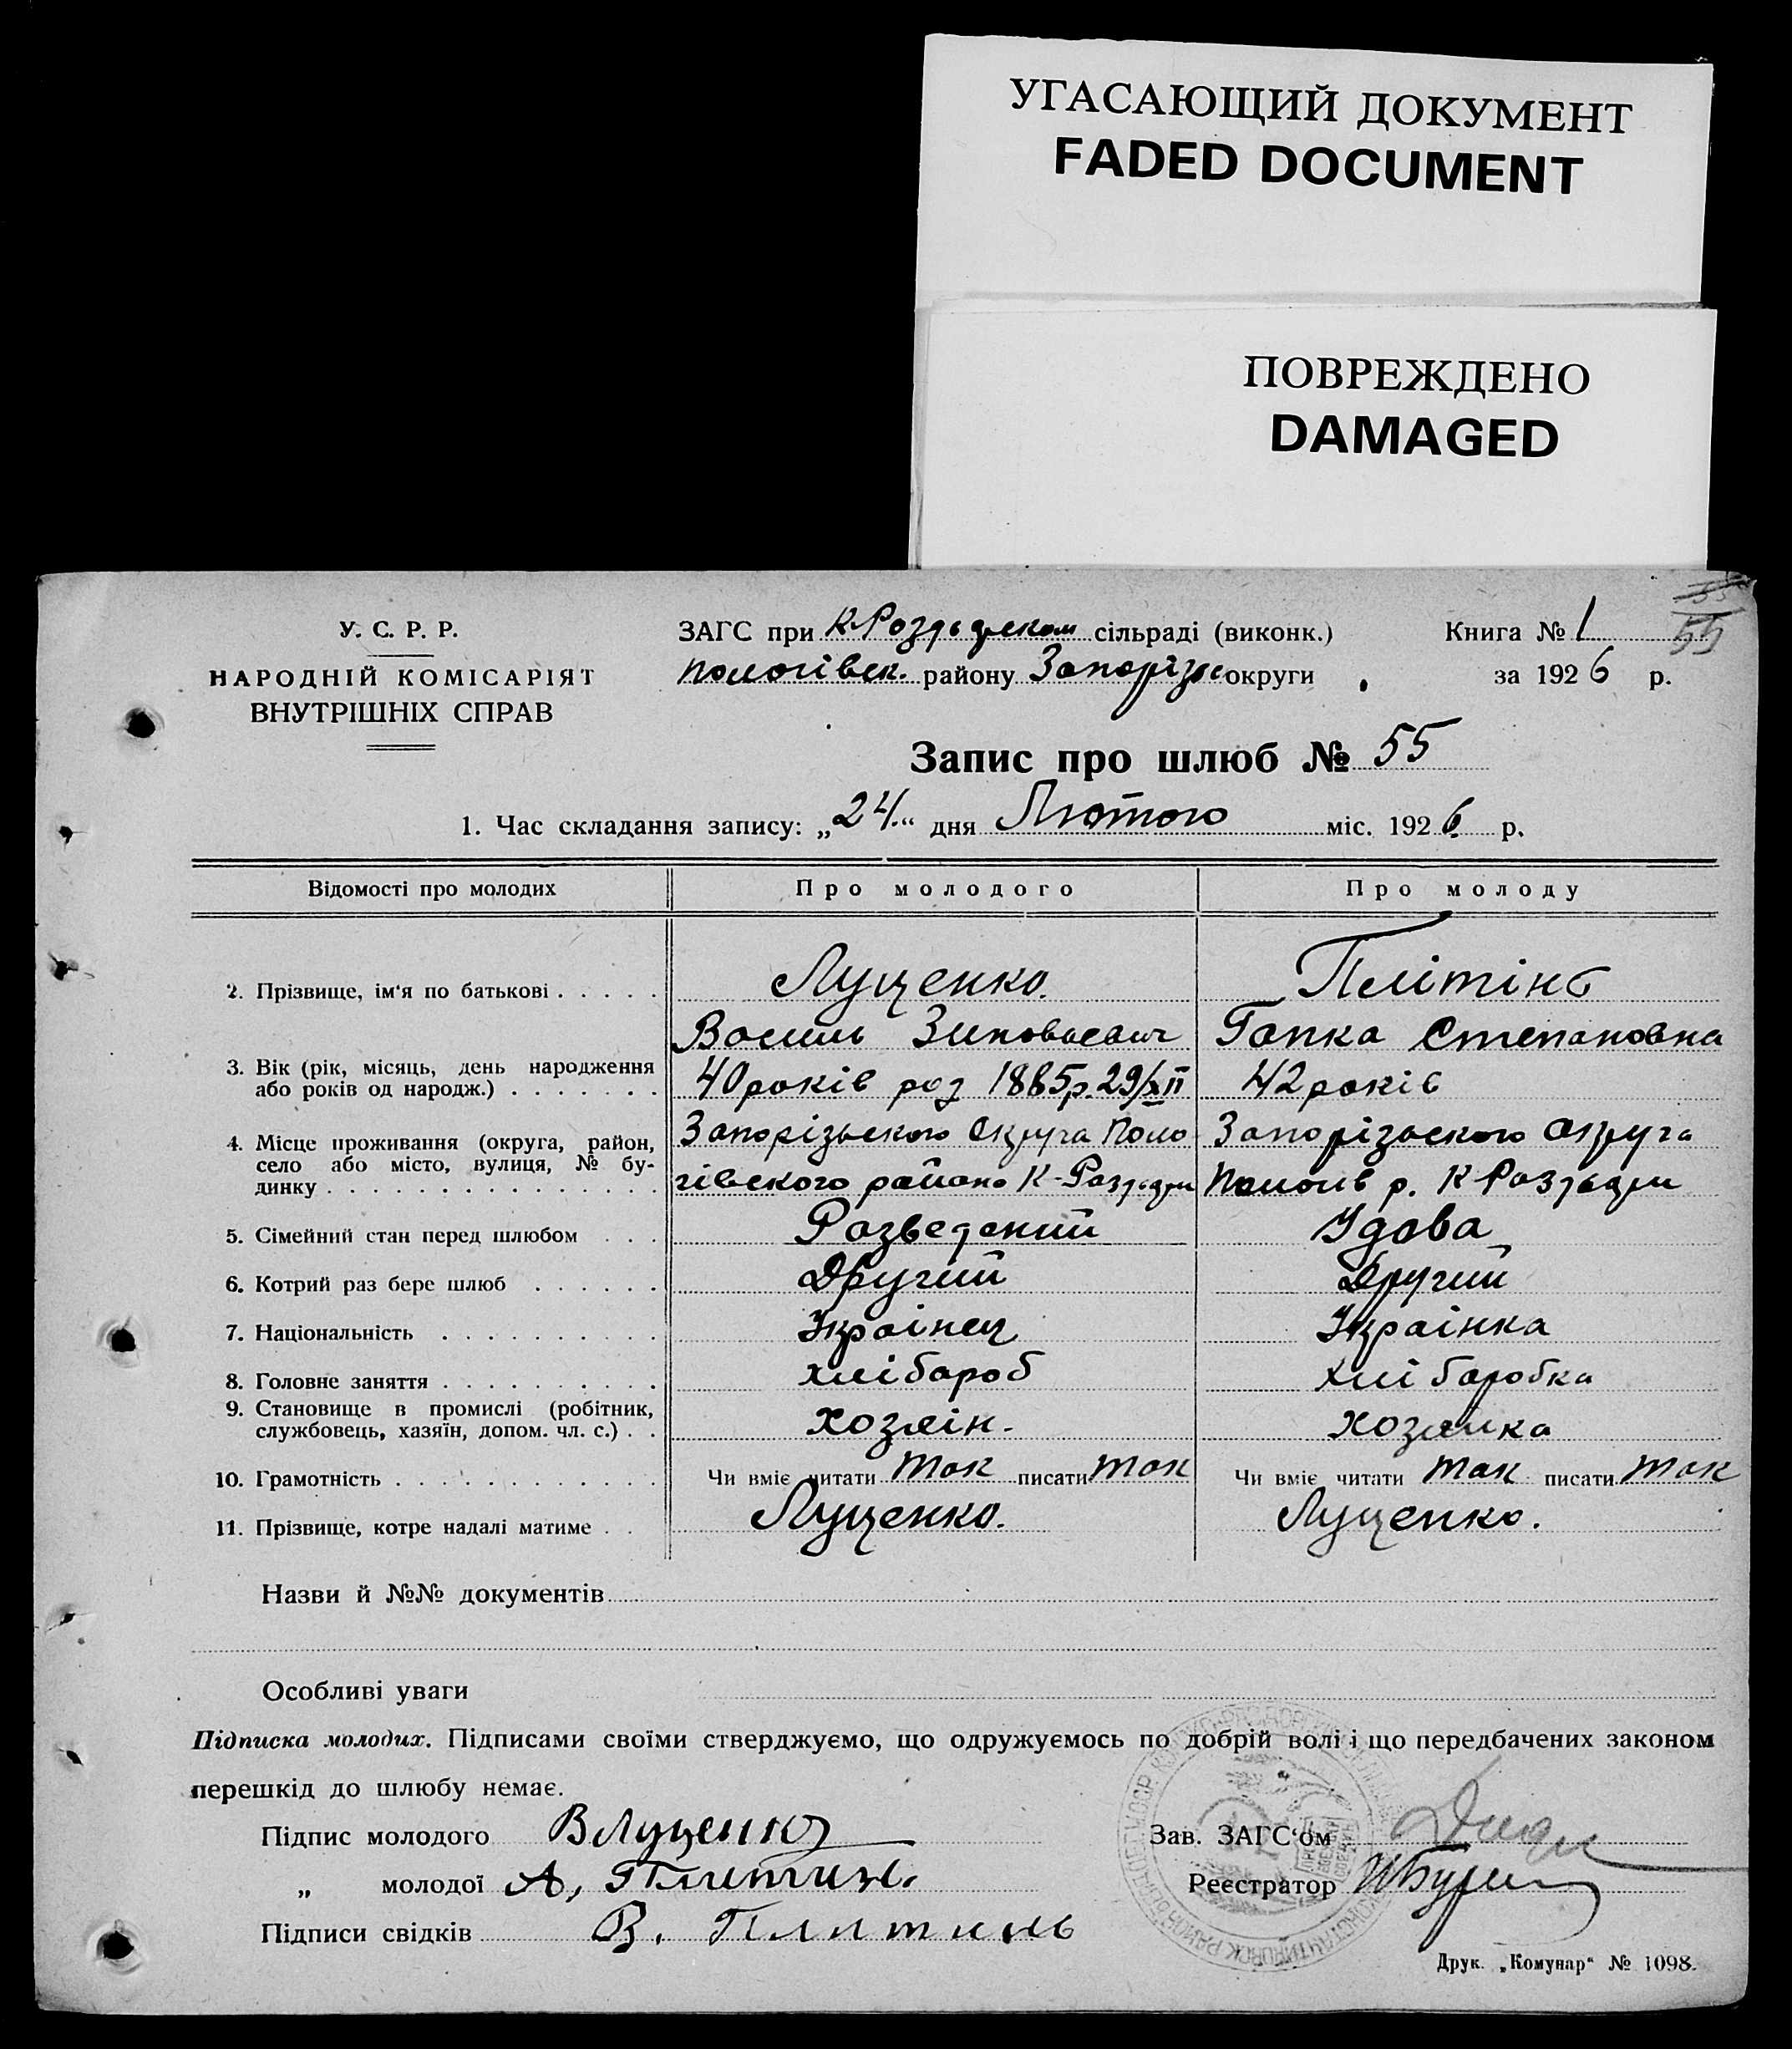 УГАСАЮЩИЙ ДОКУМЕНТ
FADED DOCUMENT
ПОВРЕЖДЕНО
DAMAGED
55
У. С. Р. Р.
НАРОДНІЙ КОМІСАРІЯТ
ВНУТРІШНІХ СПРАВ
ЗАГС при К-Роздьдском сільраді (виконк.) Книга № 1
Пологівск. району Запорізьс округи за 1926 р.
Запис про шлюб № 55
1. Час складання запису: „24.“ дня Лютого міс. 1926. р.
Відомості про молодих Про молодого Про молоду
2. Прізвище, ім'я по батькові Луценко. Плітінь
Василь Зиновьевич Гапка Степановна
3. Вік (рік, місяць, день народження або років од народж.) 40 років род 1885р. 29/XII 42 років
4. Місце проживання (округа, район, село або місто, вулиця, № будинку Запорізьского Округа Поло Запорізьского округа
гівского района К-Роздьдри Пологів р. К Роздьдри
5. Сімейний стан перед шлюбом Розведений Удова
6. Котрий раз бере шлюб Другий Другий
7. Національність Українец Українка
8. Головне заняття хлібароб хліборобка
9. Становище в промислі (робітник, службовець, хазяїн, допом. чл. с.) хозяін. хозяйка
10. Грамотність Чи вміє читати так писати так Чи вміє читати так писати так
11. Прізвище, котре надалі матиме Луценко. Луценко.
Назви й №№ документів
Особливі уваги
Підписка молодих. Підписами своїми стверджуємо, що одружуємось по добрій волі і що передбачених законом
перешкід до шлюбу немає.
Підпис молодого ВЛуценко Зав. ЗАГС'ом
„ молодої А, Плитинь Реєстратор
Підписи свідків В. Плитинь
Друк. „Комунар“ № 1098.